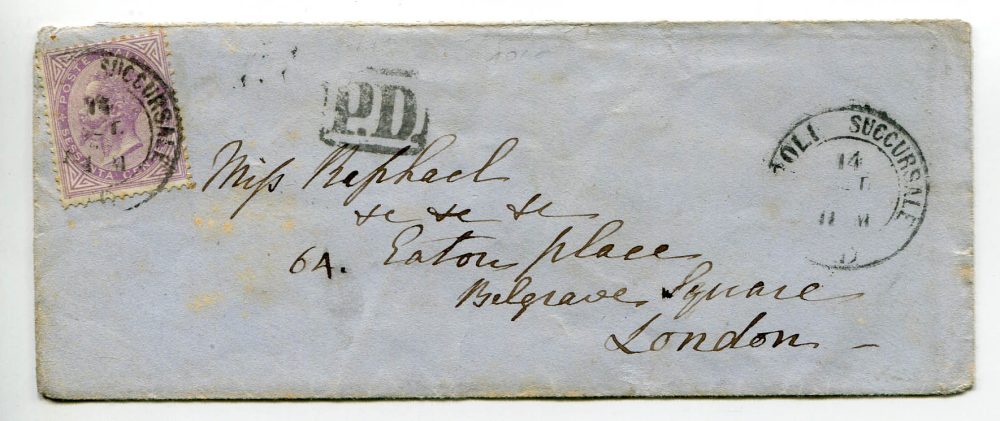 POSTE
SESSANTA CENT
SUCCURSALE
14
P.D.
Miss Raphael
&c &c &c
64. Eaton place
Belgrave Square
London
OLI SUCCURSALE
14
11 M